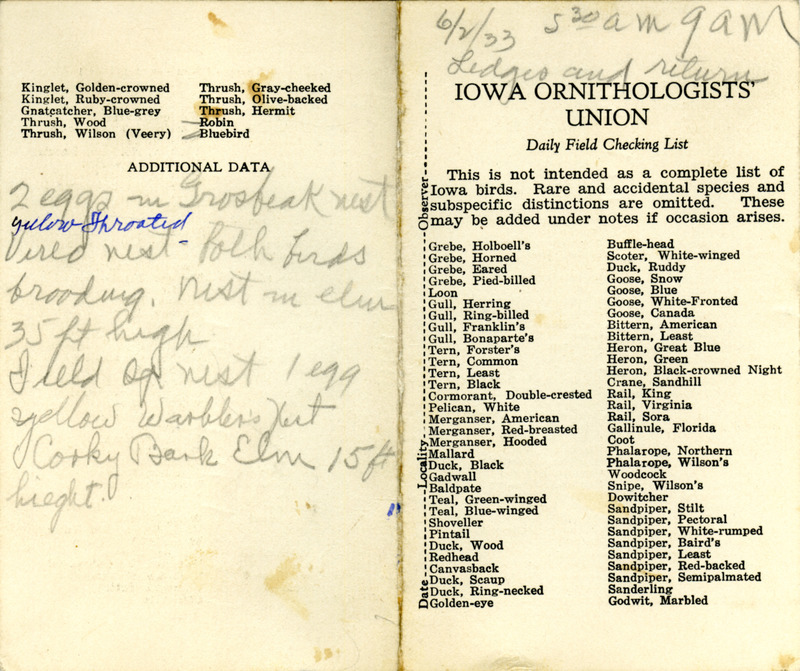 Kinglet, Golden-crowned
Kinglet, Ruby-crowned
Gnatcatcher, Blue-grey
Thrush, Wood
Thrush, Wilson (Veery)
Thrush, Gray-cheeked
Thrush, Olive-backed
Thrush, Hermit
Robin
Bluebird
ADDITIONAL DATA
2 eggs in Grosbeak nest
yellow Throated
Vireo nest - both birds
brooding. nest in elm
35 ft high
Field Sp nest 1 egg
yellow Warblers Nest
Corky Bark Elm 15 ft
hieght.
6/2/33 5 30 am 9 am
Ledges and return
IOWA ORNITHOLOGISTS'
UNION
Daily Field Checking List
This is not intended as a complete list of
Iowa birds. Rare and accidental species and
subspecific distinctions are omitted. These
may be added under notes if occasion arises.
Date Locality Observer
Grebe, Holboell's
Grebe, Horned
Grebe, Eared
Grebe, Pied-billed
Loon
Gull, Herring
Gull, Ring-billed
Gull, Franklin's
Gull, Bonaparte's
Tern, Forster's
Tern, Common
Tern, Least
Tern, Black
Cormorant, Double-crested
Pelican, White
Merganser, American
Merganser, Red-breasted
Merganser, Hooded
Mallard
Duck, Black
Gadwall
Baldpate
Teal, Green-winged
Teal, Blue-winged
Shoveller
Pintail
Duck, Wood
Redhead
Canvasback
Duck, Scaup
Duck, Ring-necked
Golden-eye
Buffle-head
Scoter, White-winged
Duck, Ruddy
Goose, Snow
Goose, Blue
Goose, White-Fronted
Goose, Canada
Bittern, American
Bittern, Least
Heron, Great Blue
Heron, Green
Heron, Black-crowned Night
Crane, Sandhill
Rail, King
Rail, Virginia
Rail, Sora
Gallinule, Florida
Coot
Phalarope, Northern
Phalarope, Wilson's
Woodcock
Snipe, Wilson's
Dowitcher
Sandpiper, Stilt
Sandpiper, Pectoral
Sandpiper, White-rumped
Sandpiper, Baird's
Sandpiper, Least
Sandpiper, Red-backed
Sandpiper, Semipalmated
Sanderling
Godwit, Marbled